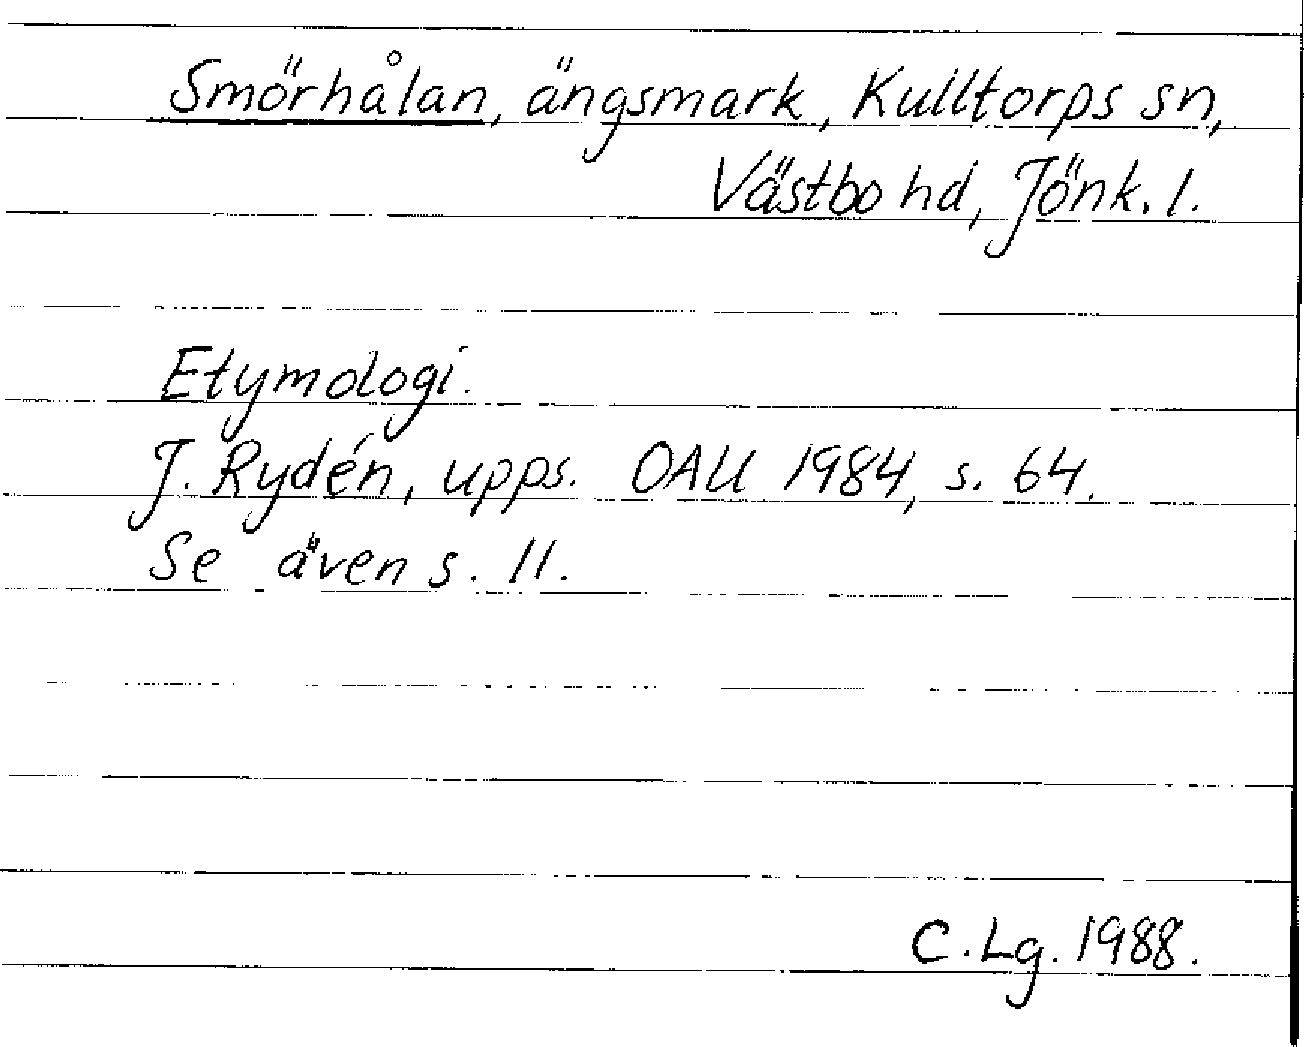 Smörhålan, ängsmark, Kulltorps sn,
Västbo hd, Jönk. l.
Etymologi.
J. Rydén, upps. OAU 1984, s. 64.
Se även s. 11.
C. Lg. 1988.